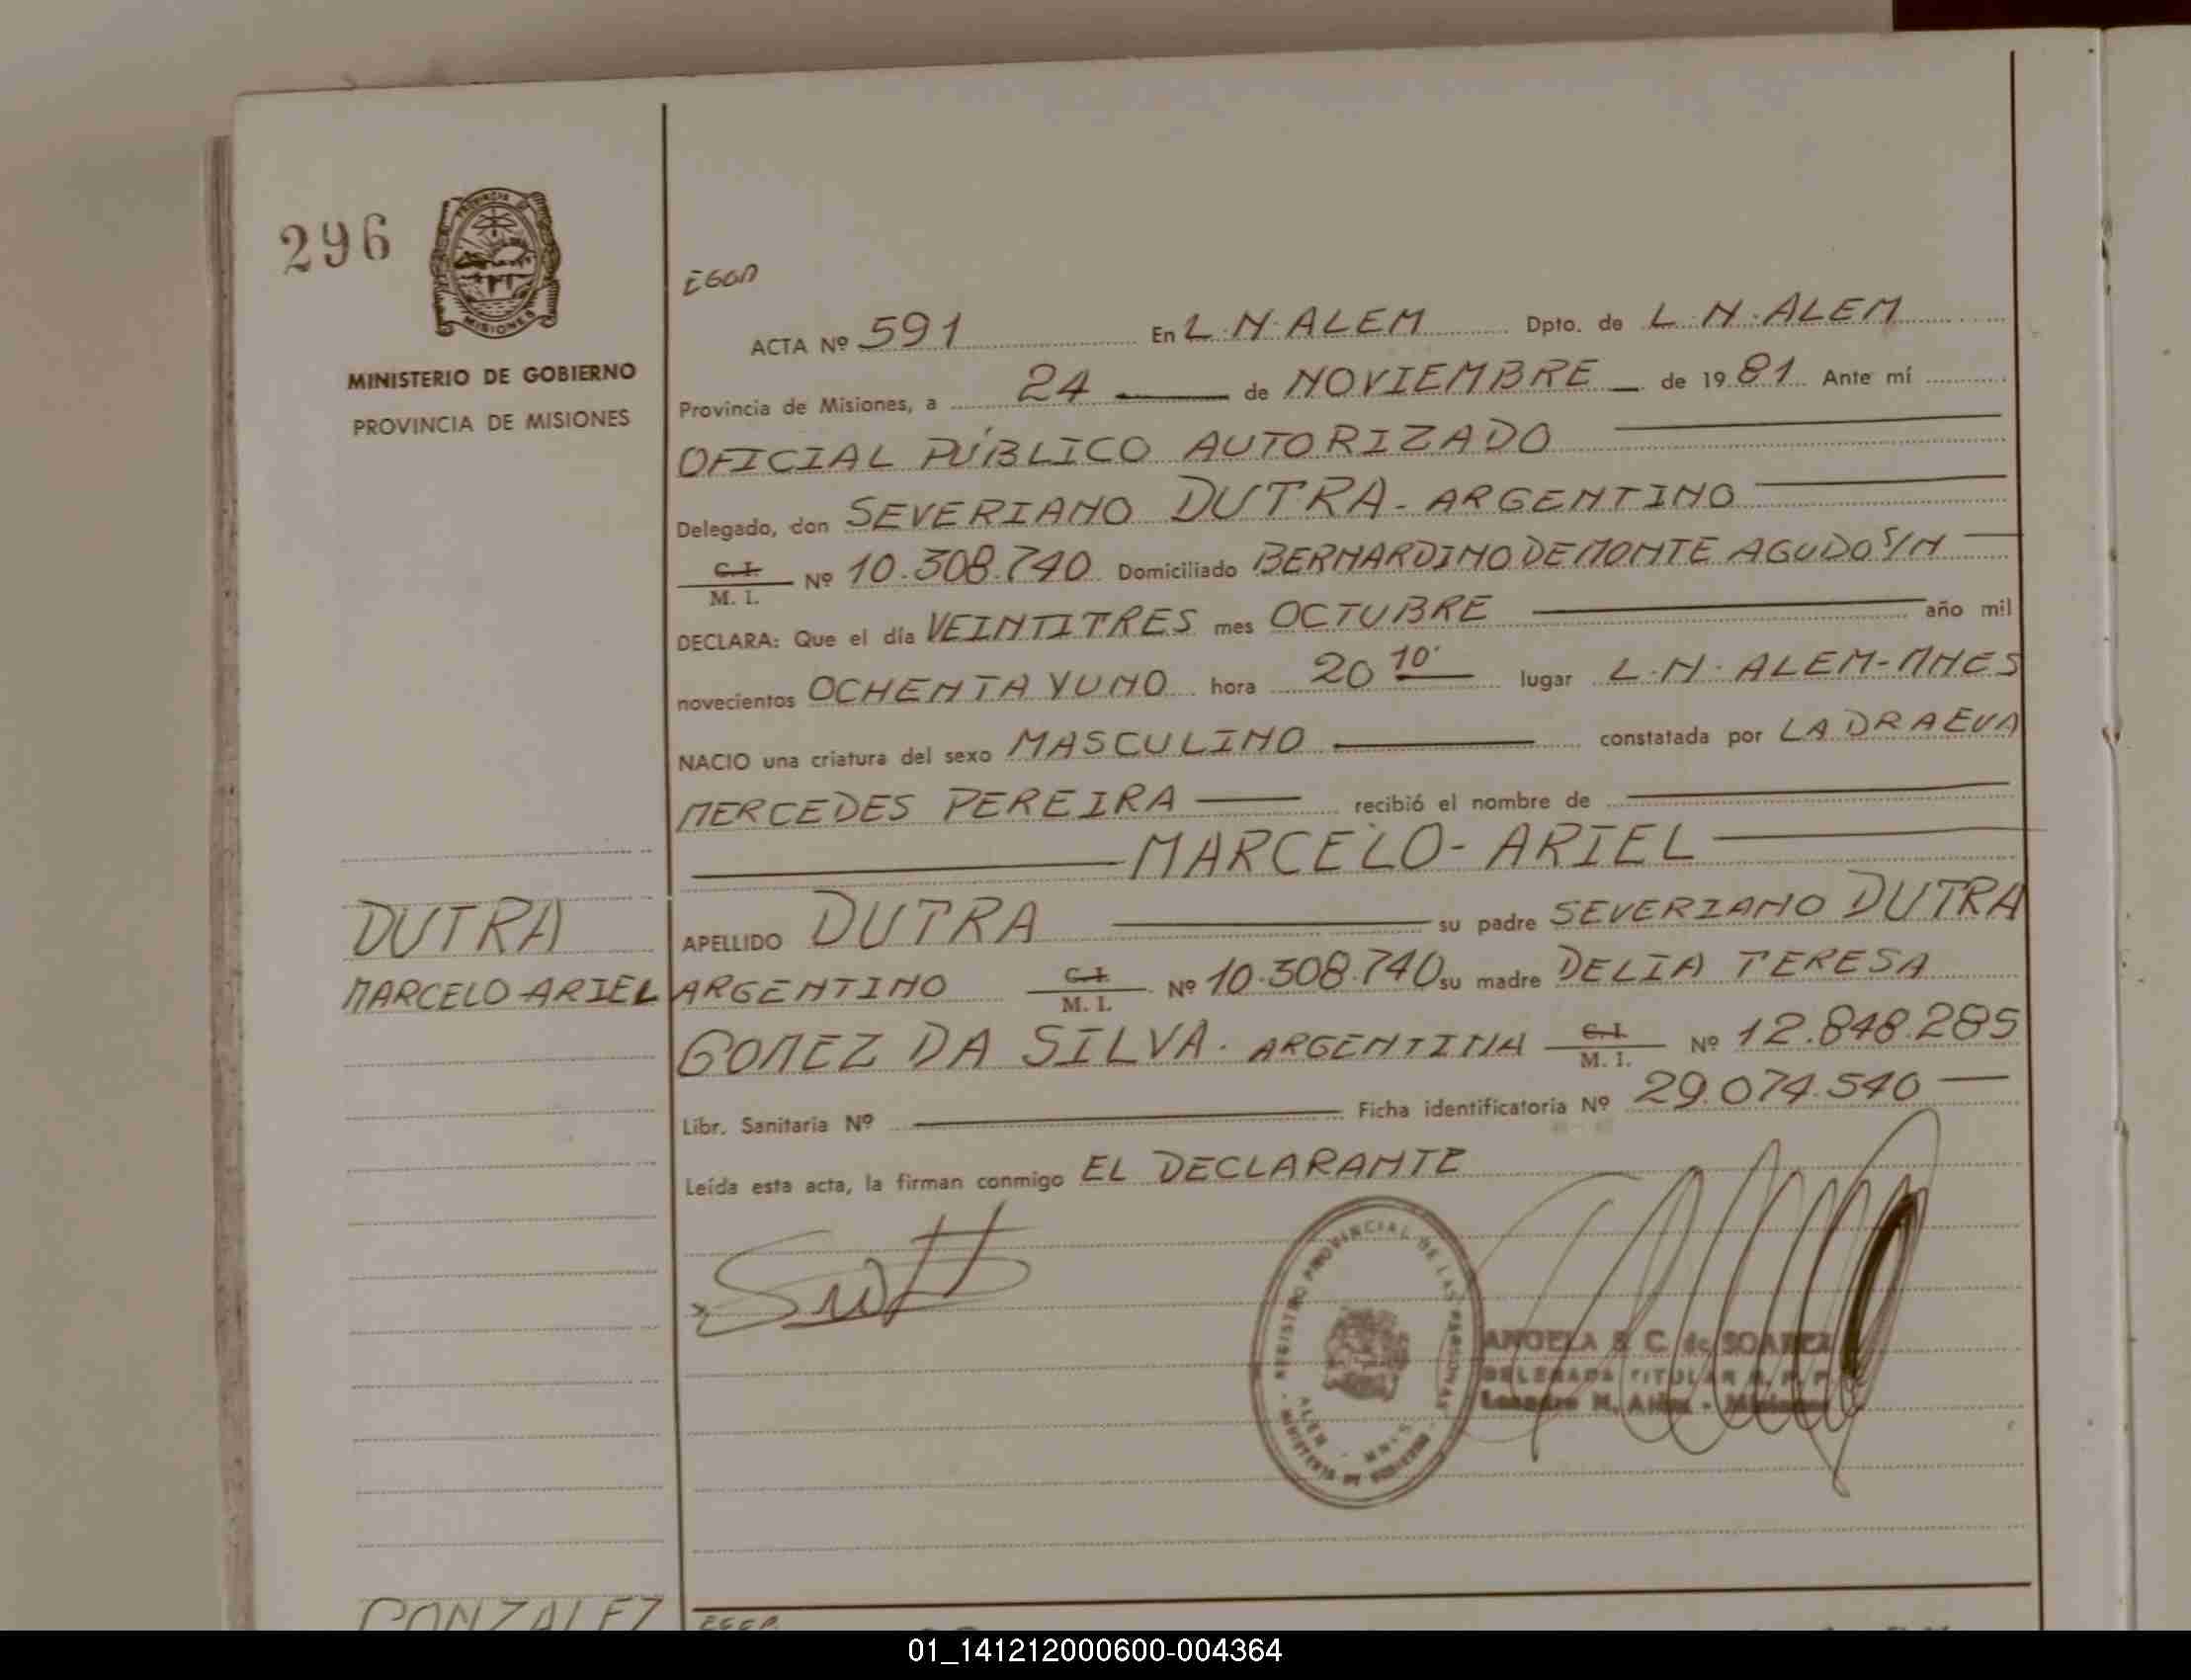 296
PROVINCIA DE
MISIONES
MINISTERIO DE GOBIERNO
PROVINCIA DE MISIONES
EGGA
ACTA Nº 591 En L.N.ALEM Dpto. de L.N.ALEM
Provincia de Misiones, a 24 de NOVIEMBRE de 1981 Ante mí
OFICIAL PÚBLICO AUTORIZADO
Delegado, don SEVERIANO DUTRA - ARGENTINO
C. I.
M. I. Nº 10.308.740 Domiciliado BERNARDINO DE MONTE AGUDO S/N
DECLARA: Que el día VEINTITRES mes OCTUBRE año mil
novecientos OCHENTA Y UNO hora 20 10' lugar L.N. ALEM-MNES
NACIO una criatura del sexo MASCULINO constatada por LA DRA EVA
MERCEDES PEREIRA recibió el nombre de
MARCELO - ARIEL
DUTRA
APELLIDO DUTRA su padre SEVERIANO DUTRA
MARCELO ARIEL
ARGENTINO C. I. M. I. Nº 10.308.740 su madre DELIA TERESA
GOMEZ DA SILVA. ARGENTINA C. I. M. I. Nº 12.848.285
Libr. Sanitaria Nº Ficha identificatoria Nº 29.074.540
Leída esta acta, la firman conmigo EL DECLARANTE
REGISTRO PROVINCIAL DE LAS PERSONAS
ALEM - MNES
MINISTERIO DE GOBIERNO
ANGELA S. C. de SOAREZ
DELEGADA TITULAR R. P. P.
Leandro N. Alem - Misiones
GONZALEZ
01_141212000600-004364